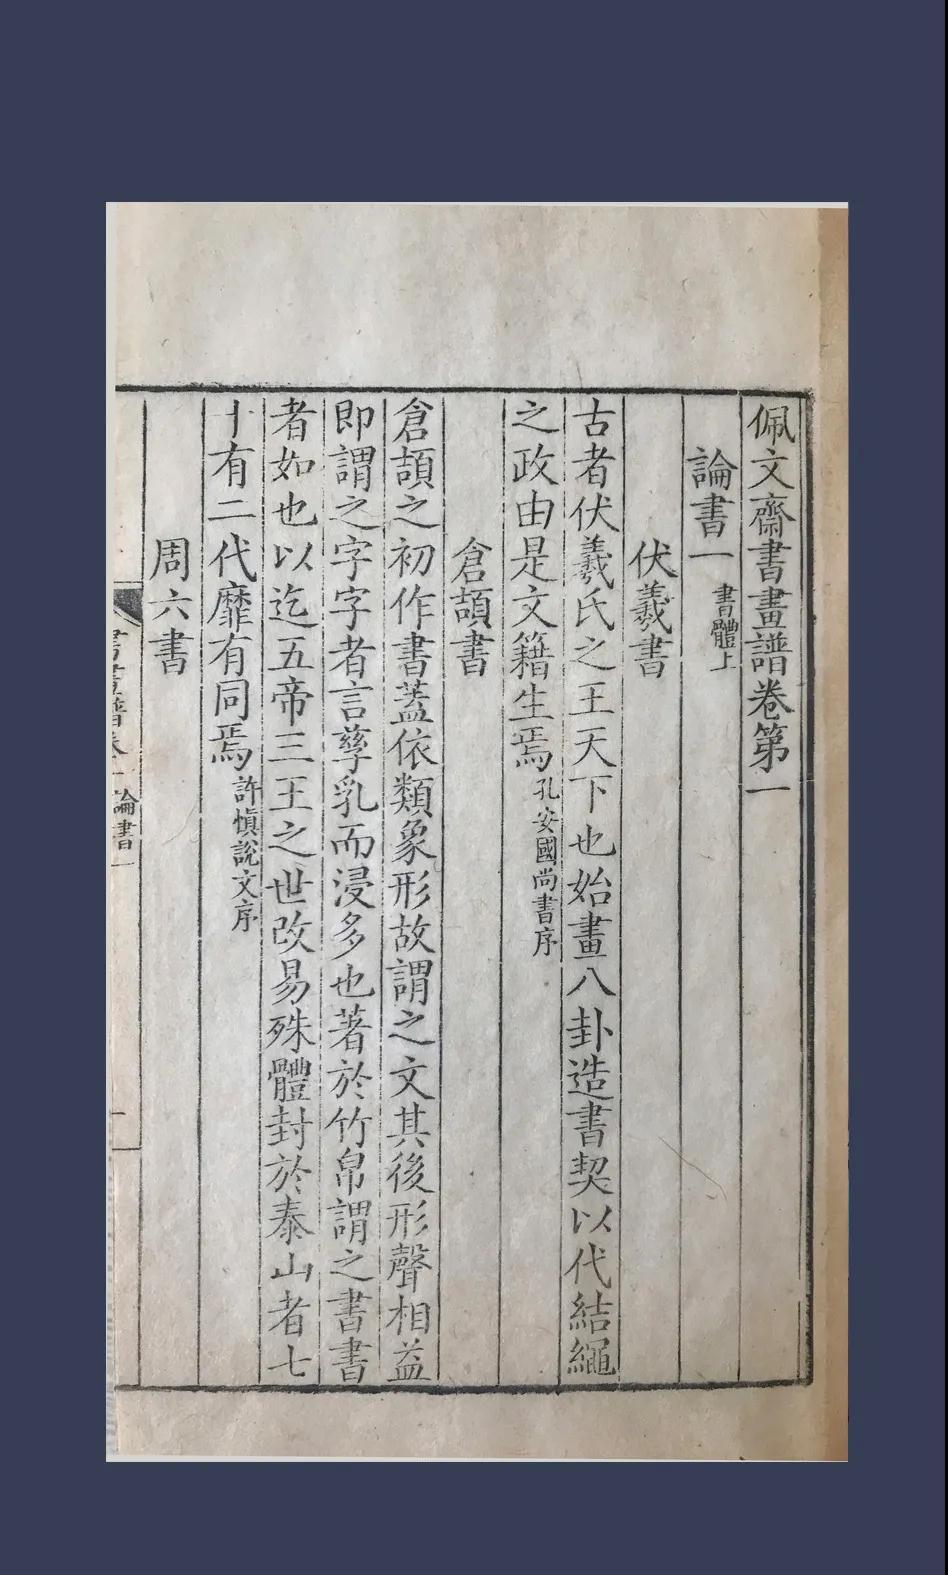 佩文齋書畫譜卷第一
論書一 書體上
伏羲書
古者伏羲氏之王天下也始畫八卦造書契以代結繩
之政由是文籍生焉 孔安國尚書序
倉頡書
倉頡之初作書蓋依類象形故謂之文其後形聲相益
即謂之字字者言孳乳而浸多也著於竹帛謂之書書
者如也以迄五帝三王之世改易殊體封於泰山者七
十有二代靡有同焉 許慎說文序
周六書
論書一